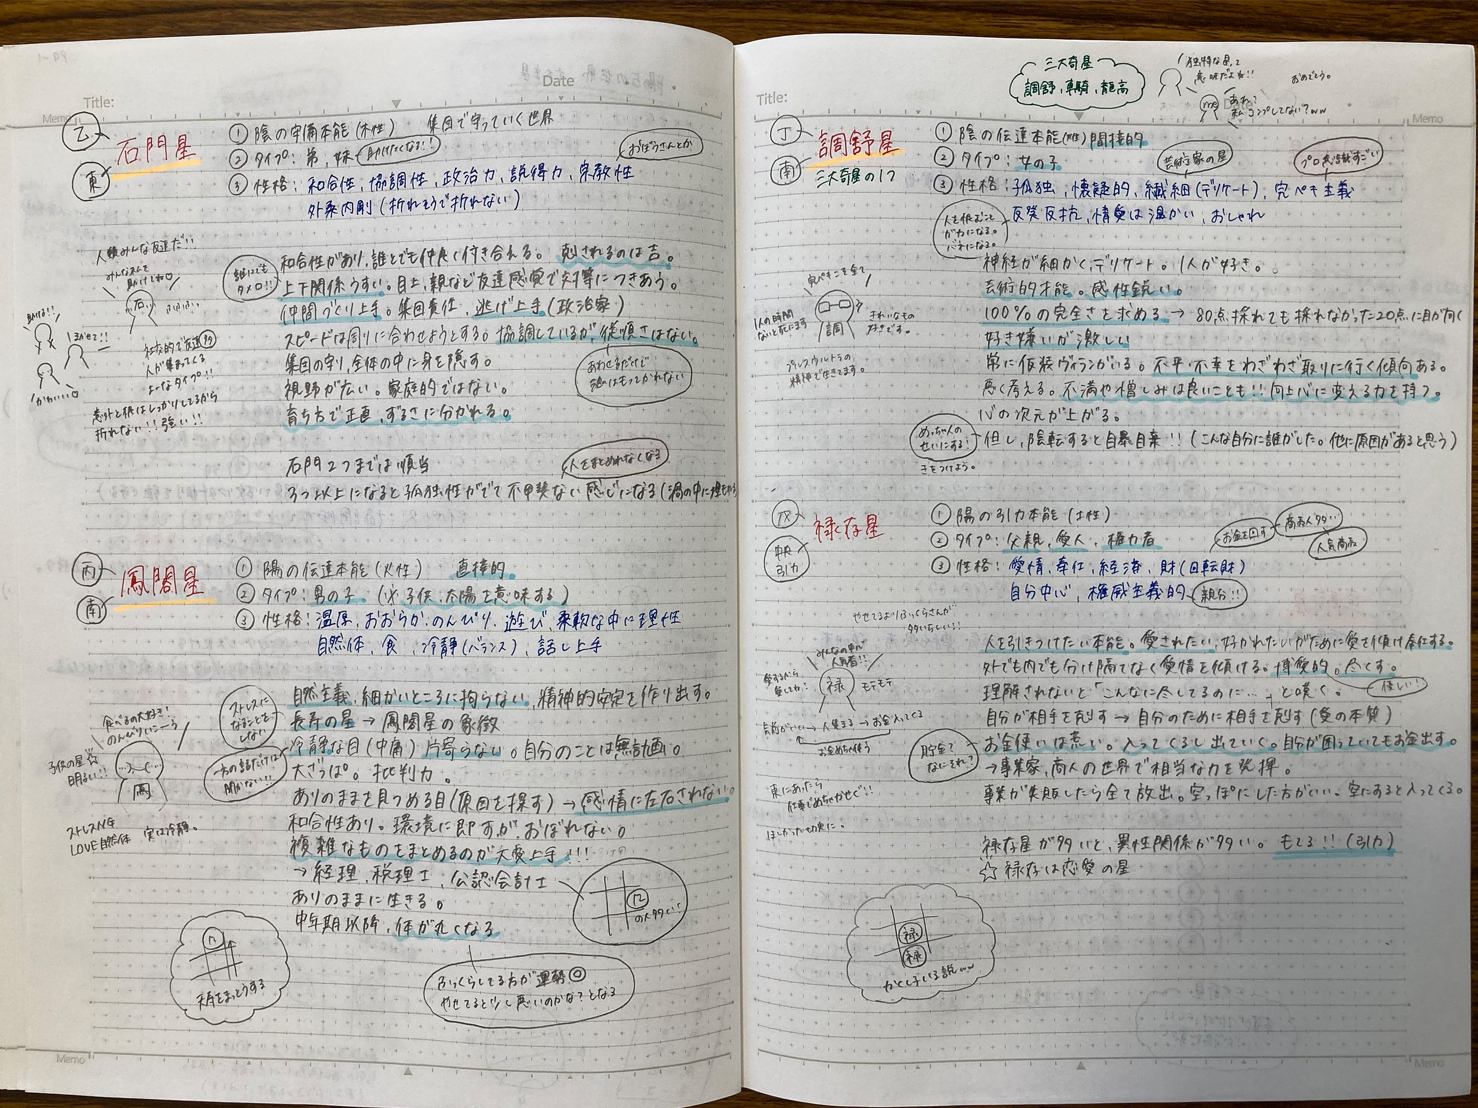 Date
Title:
Memo
乙
東
石門星
① 陰の守備本能(木性) 集団で守っていく世界
② タイプ: 弟、妹
助けたくなる!!
③ 性格: 和合性、協調性、政治力、説得力、宗教性
おぼうさんとか
外柔内剛(折れそうで折れない)
人類みんな友達だい
みんなして
石
誰にでも
タメ口!!
和合性があり、誰とでも仲良く付き合える。剋されるのは吉。
上下関係うすい。目上、親など友達感覚で対等につきあう。
仲間づくり上手。集団責任、逃げ上手(政治家)
スピードは周りに合わせようとする。協調しているが、従順さはない。
集団の守り、全体の中に身を隠す。
視野が広い。家庭的ではない。
育ち方で正直、ずるさに分かれる。
あわせるだけで
心はもってかれない
社交的で友達多
人が集まってくる
よーなタイプ!!
かわいい
意外と根はしっかりしてるから
折れない!!強い!!
石門2つまでは順当
人をまとめれなくなる
3つ以上になると孤独性がでて不甲斐ない感じになる
丙
南
鳳閣星
① 陽の伝達本能(火性) 直接的
② タイプ: 男の子 (※子供、太陽を意味する)
③ 性格: 温厚、おおらか、のんびり、遊び、柔軟な中に理性
自然体、食、冷静(バランス)、話し上手
ストレスに
なることを
しない
自然主義、細かいところに拘らない、精神的安定を作り出す。
長寿の星→鳳閣星の象徴
冷静な目(中庸)片寄らない。自分のことは無計画。
大ざっぱ。批判力。
一方の話だけは
聞かない!!
食べるの大好き!
のんびりいこーう
子供の星☆
明るい!!
鳳
ストレスNG
LOVE自然体 実は冷静。
ありのままを見つめる目(原因を探す)→感情に左右されない。
和合性あり。環境に即すが、おぼれない。
複雑なものをまとめるのが大変上手!!!
→経理、税理士、公認会計士
ありのままに生きる。
中年期以降、体が丸くなる
の人多い!
ふっくらしてる方が運勢◎
やせてると少し悪いのかな?となる
天寿をまっとうする
Memo
三大奇星
調舒、車騎、龍高
独特な星って
意味だよね!!
おめでとう。
me
Title:
Date
Memo
丁
南
調舒星
三大奇星の1つ
① 陰の伝達本能(火性)間接的
② タイプ: 女の子
芸術家の星
③ 性格: 孤独、懐疑的、繊細(デリケート)、完ペキ主義
プロ意識すごい
反発反抗、情愛は温かい、おしゃれ
人を恨むこと
がカになる。
バネになる。
神経が細かく、デリケート。1人が好き。
芸術的才能。感性鋭い。
100%の完全さを求める→80点採れても採れなかった20点に目が向く
好き嫌いが激しい
常に仮装ヴィランがいる。不平・不幸をわざわざ取りに行く傾向ある。
悪く考える。不満や憎しみは良いことも!!向上心に変える力を持つ。
心の次元が上がる。
但し、陰転すると自暴自棄!!(こんな自分に誰がした。他に原因があると思う)
めっちゃ人の
せいにする!
きをつけよう。
完ペキこを全て
1人の時間
ないと死にます
調
きれいなもの
好きです。
プルスウルトラの
精神で生きてます。
戊
中央
引力
禄存星
① 陽の引力本能(土性)
② タイプ: 父親、愛人、権力者
③ 性格: 愛情、奉仕、経済、財(回転財)
自分中心、権威主義的
親分!!
お金を回す
商売人多い
人気商売
やせてるよりふっくらさんが
多いらしい!!
みんなの中で
人気者!!
禄
モテモテ
愛するから
愛してね!
人を引きつけたい本能。愛されたい、好かれたいがために愛を傾け奉仕する。
外でも内でも分け隔てなく愛情を傾ける。博愛的。尽くす。
優しい!
理解されないと「こんなに尽してるのに…」と嘆く。
自分が相手を剋す→自分のために相手を剋す(愛の本質)
お金使いは荒い。入ってくるし出ていく。自分が困っていてもお金出す。
→事業家、商人の世界で相当な力を発揮。
事業が失敗したら全て放出。空っぽにした方がいい、空にすると入ってくる。
貯金て
なにそれ?
→人集まる→お金入ってくる
お金めちゃ使う
東にあったら
仕事でめちゃかせぐ!!
禄存星が多いと、異性関係が多い。もてる!!(引力)
☆禄存は恋愛の星
禄
禄
かくし子いる説ww
Memo
Memo